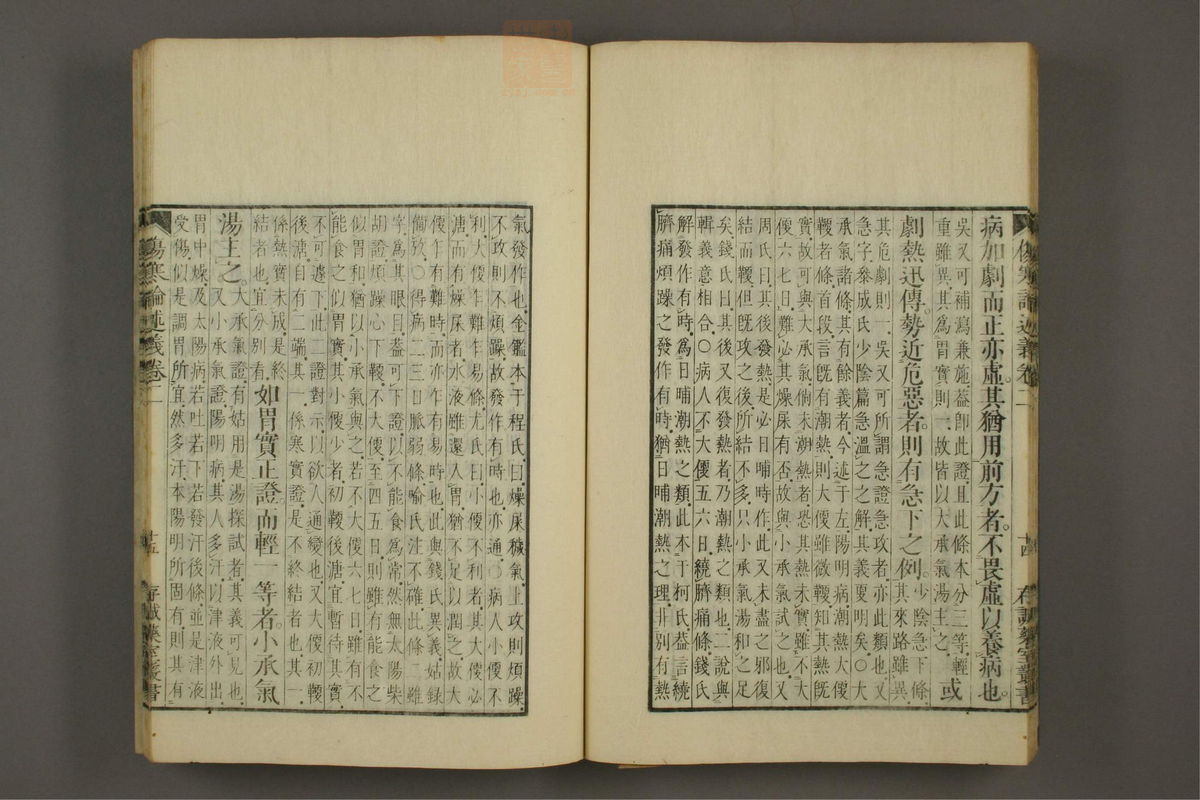 病加劇而正亦虛其猶用前方者不畏虛以養病也
吳又可補瀉兼施葢卽此證且此條本分三等輕
重雖異其爲胃實則一故皆以大承氣湯主之或
劇熱迅傳勢近危惡者則有急下之例少陰急下條其來路雖異
其危劇則一吳又可所謂急證急攻者亦此類也又
急字叅成氏少陰篇急溫之之解其義更明矣○大
承氣諸條其有餘義者今述于左陽明病潮熱大便
鞕者條首段言旣有潮熱則大便雖微鞕知其熱旣
實故可與大承氣倘未潮熱者恐其熱未實雖不大
便六七日難必其燥屎有否故與小承氣試之也
周氏曰其後發熱是必日晡時作此又未盡之邪復
結而鞕但旣攻之後所結不多只小承氣湯和之足
矣錢氏曰其後又復發熱者乃潮熱之類也二說與
輯義意相合○病人不大便五六日繞臍痛條錢氏
解發作有時爲日晡潮熱之類此本于柯氏葢言繞
臍痛煩躁之發作有時猶日晡潮熱之理非別有熱
傷寒論述義卷二
十四
存誠藥室叢書
氣發作也金鑑本于程氏曰燥屎穢氣上攻則煩躁
不攻則不煩躁故發作有時也亦通○病人小便不
利大便乍難乍易條尤氏曰小便不利者其大便必
溏而有燥屎者水液雖還入胃猶不足以潤之故大
便乍有難時而亦乍有易時也此與錢氏異義姑錄
備攷○得病二三日脈弱條喻氏注不確此條二雖
字爲其眼目葢可下證以不能食爲常然無太陽柴
胡證煩躁心下鞕不大便至四五日則雖有能食之
似胃和猶以小承氣與之若不大便六七日雖有不
能食之似胃實其小便少者初鞕後溏宜暫待其實
不可遽下此二證對示以欲人通變也又大便初鞕
後溏自有二端其一係寒實證是不終結者也其一
係熱實未成是終
結者也宜分別看如胃實正證而輕一等者小承氣
湯主之大承氣證有姑用是湯探試者其義可見也
又小承氣證陽明病其人多汗以津液外出
胃中燥及太陽病若吐若下若發汗後條並是津液
受傷似是調胃所宜然多汗本陽明所固有則其有
傷寒論述義卷二
十五
存誠藥室叢書